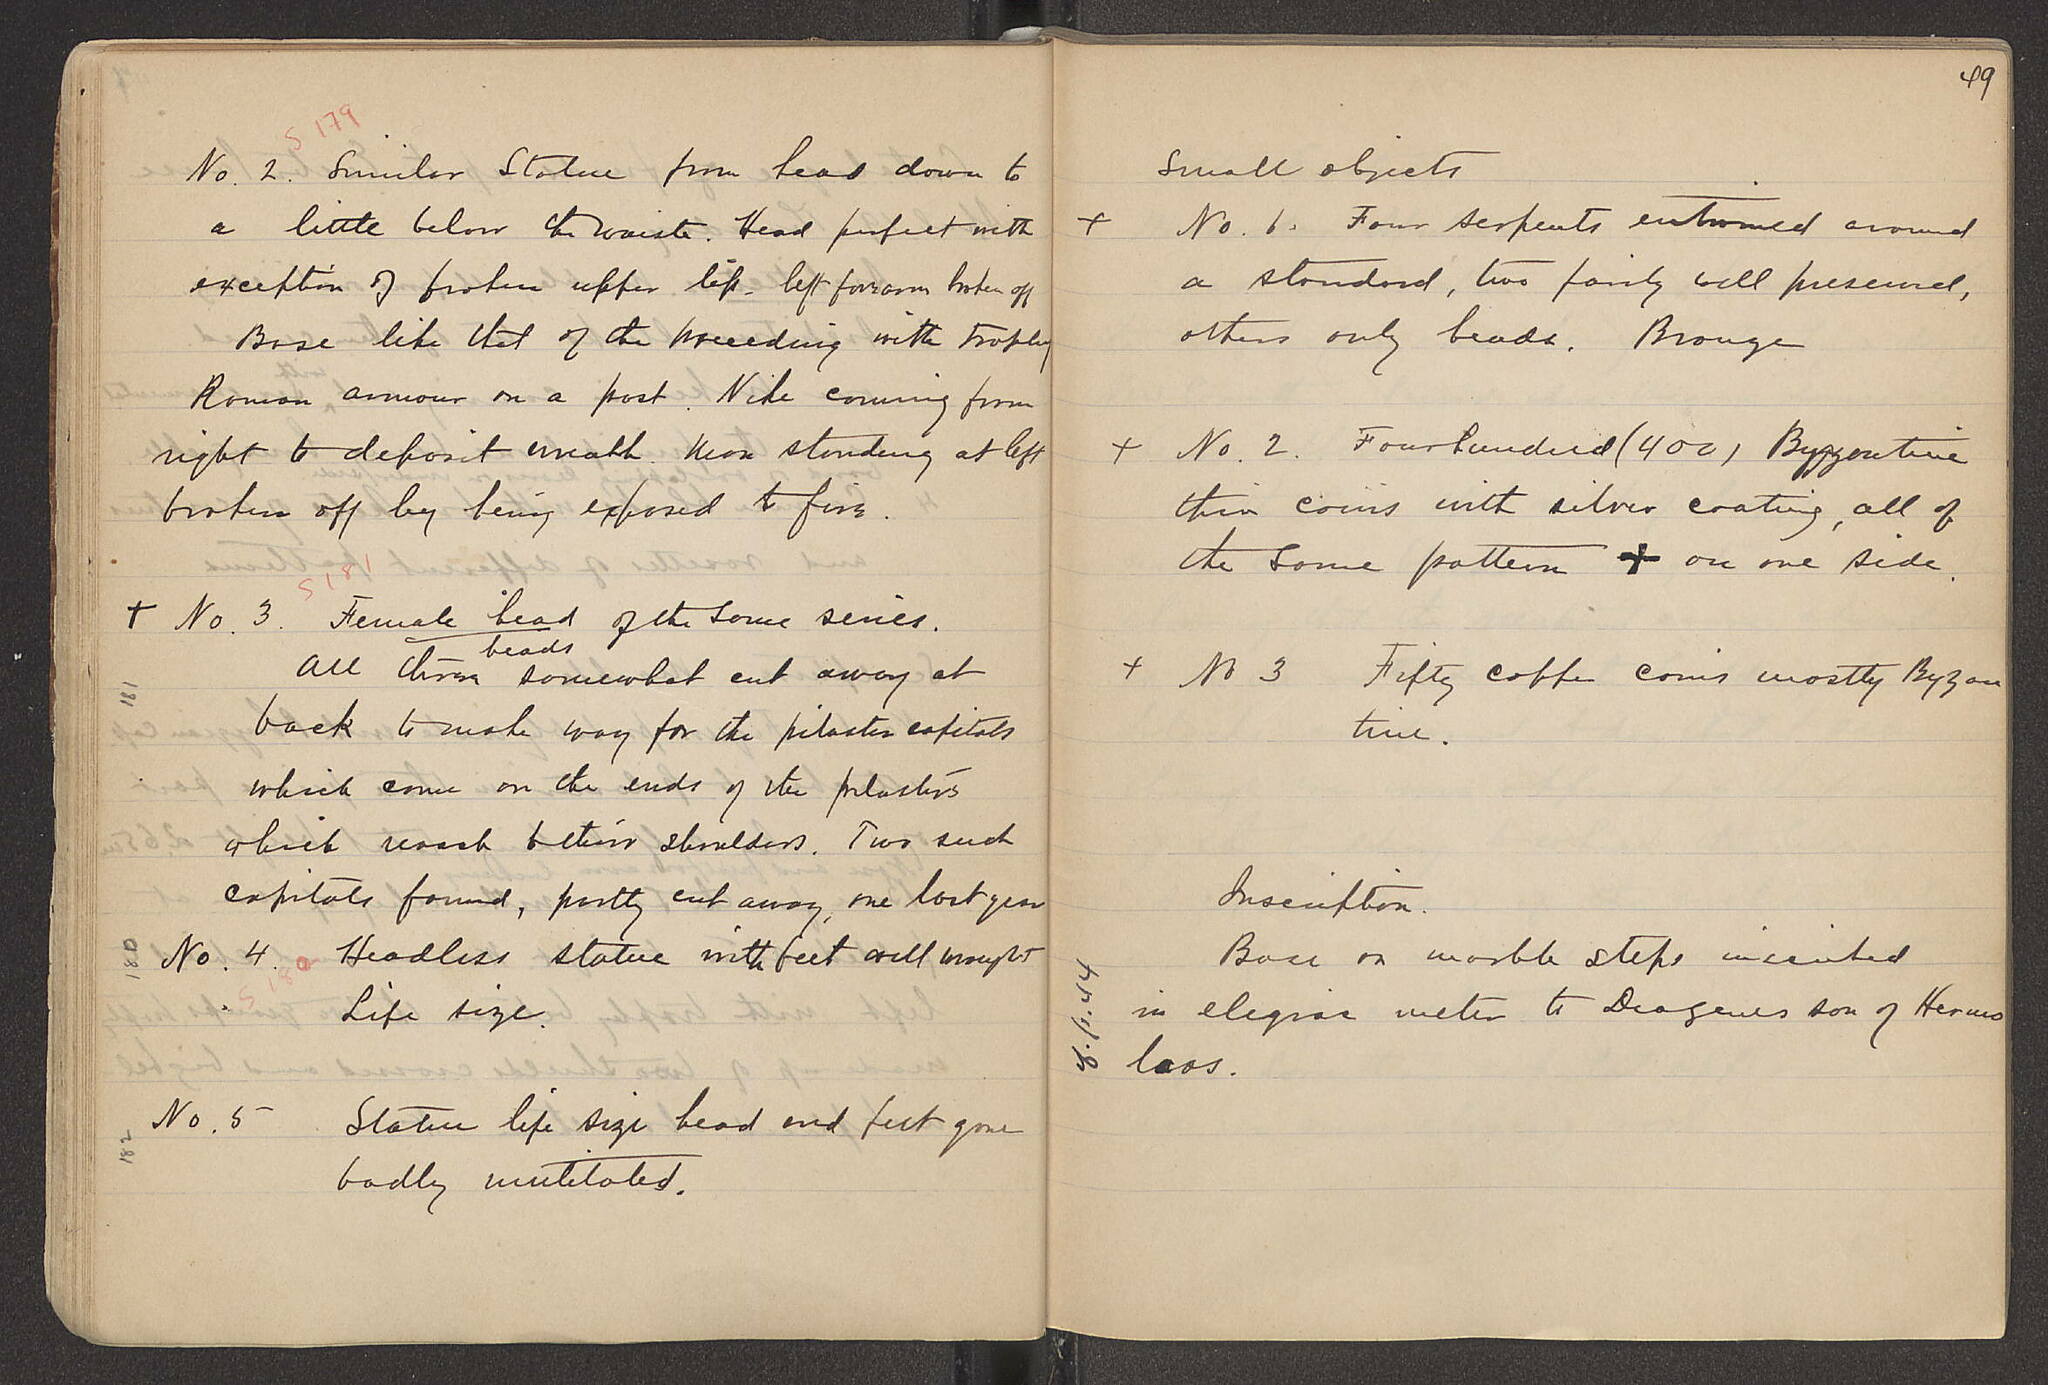 S 179
No. 2. Similar Statue from head down to
a little below the waist. Head perfect with
exception of broken upper lip. left forearm broken off
Base like that of the preceding with trophy
Roman armour on a post. Nike coming from
right to deposit wreath. Man standing at left
broken off by being exposed to fire.
S 181
+ No. 3. Female head of the same series.
All three heads somewhat cut away at
181
back to make way for the pilaster capitals
which come on the ends of the pilasters
which reach to their shoulders. Two such
capitals found, partly cut away, one last year
180
No. 4. Headless statue with feet well wrought
S 180
Life size.
182
No. 5 Statue life size head and feet gone
badly mutilated.
49
Small objects
+ No. 1. Four serpents entwined around
a standard, two fairly well preserved,
others only heads. Bronze
+ No. 2. Four hundred (400) Byzantine
thin coins with silver coating, all of
the same pattern + on one side.
+ No 3 Fifty copper coins mostly Byzan
tine.
Inscription.
Base on marble steps inscribed
in elegiac meter to Diogenes son of Hermo
laos.